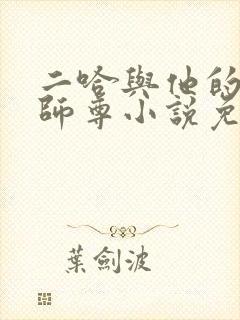 二哈與他的
師尊小說免
葉劍波